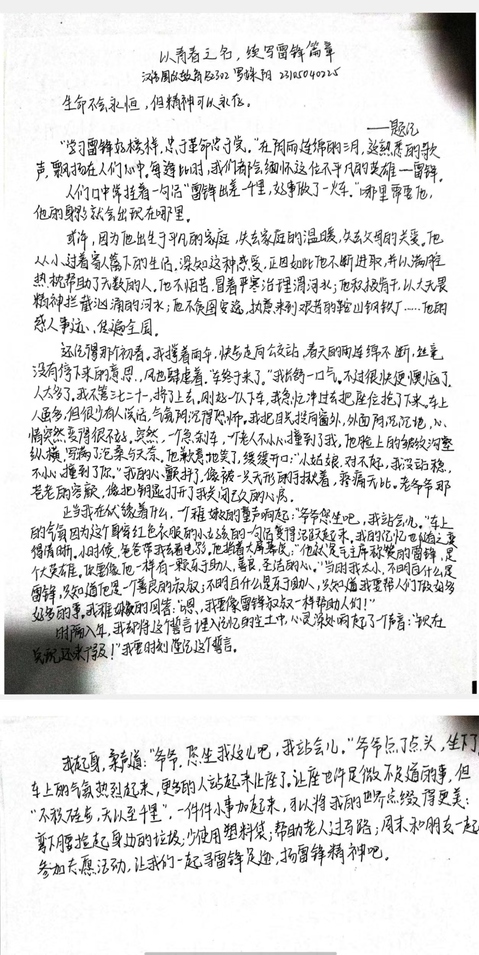 以青春之名，续写雷锋篇章
2302 23105040225
生命不会永恒，但精神可以永存。
——题记
“学习雷锋好榜样，忠于革命忠于党。”在阴雨连绵的三月，这熟悉的歌
声，飘扬在人们心中。每逢此时，我们都会缅怀这位不平凡的英雄—雷锋。
人们口中常挂着一句话“雷锋出差一千里，好事做了一火车。”哪里需要他，
他的身影就会出现在哪里。
或许，因为他出生于平凡的家庭，失去家庭的温暖，失去父母的关爱。他
从小过着寄人篱下的生活，深知这种感受，正因如此他不断进取，并以满腔
热忱帮助了无数的人。他不怕苦，冒着严寒治理沩河水；他积极肯干，以大无畏
精神拦截汹涌的河水；他不贪图安逸，执意来到艰苦的鞍山钢铁厂……他的
感人事迹，传遍全国。
还记得那个初春。我撑着雨伞，快步走向公交站，春天的雨连绵不断，丝毫
没有停下来的意思，风也肆虐着。“车终于来了。”我长舒一口气。不过很快便懊恼了，
人太多了，我不管三七二十一，挤了上去，刚好一个人下车，我急忙冲过去把座位抢了下来。车上
人虽多，但很少有人说话，气氛阴沉得恐怖。我把目光投向窗外，外面阴沉沉地，心
情突然变得很不好。突然，一个急刹车，一个老人不小心撞到了我，他脸上的皱纹沟壑
纵横，写满了沧桑与无奈。他歉意地笑了，缓缓开口：“小姑娘，对不起，我没站稳，
不小心撞到了你。”我的心颤抖了，像被一只无形的手揪着，疼痛无比。老爷爷那
苍老的容颜，像把钥匙打开了我关闭已久的心房。
正当我在犹豫着什么，一个稚嫩的童声响起：“爷爷您坐吧，我站会儿。”车上
的气氛因为这个身穿红色衣服的小女孩的一句话变得活跃起来，我的记忆也随之变
得清晰。小时候，爸爸带我去看电影，他指着大屏幕说：“他就是毛主席称赞的雷锋，是
个大英雄。你要像他一样有一颗乐于助人，善良，圣洁的心。”当时我太小，不明白什么是
雷锋，只知道他是一个善良的叔叔；不明白什么是乐于助人，只知道我要帮人们做好多
好多的事。我稚嫩的回答：“嗯，我要像雷锋叔叔一样帮助人们！”
时隔八年，我却将这个誓言埋入记忆的尘土中，心灵深处响起了个声音：“现在
兑现还来得及！”我要时刻谨记这个誓言。
我起身，柔声道：“爷爷，您坐我这儿吧，我站会儿。”爷爷点了点头，坐下了。
车上的气氛热烈起来，更多的人站起来让座了。让座也许是微不足道的事，但
“不积跬步，无以至千里”，一件件小事加起来，可以将我的世界点缀得更美：
弯下腰捡起身边的垃圾；少使用塑料袋；帮助老人过马路；周末和朋友一起
参加志愿活动，让我们一起寻雷锋足迹，扬雷锋精神吧。